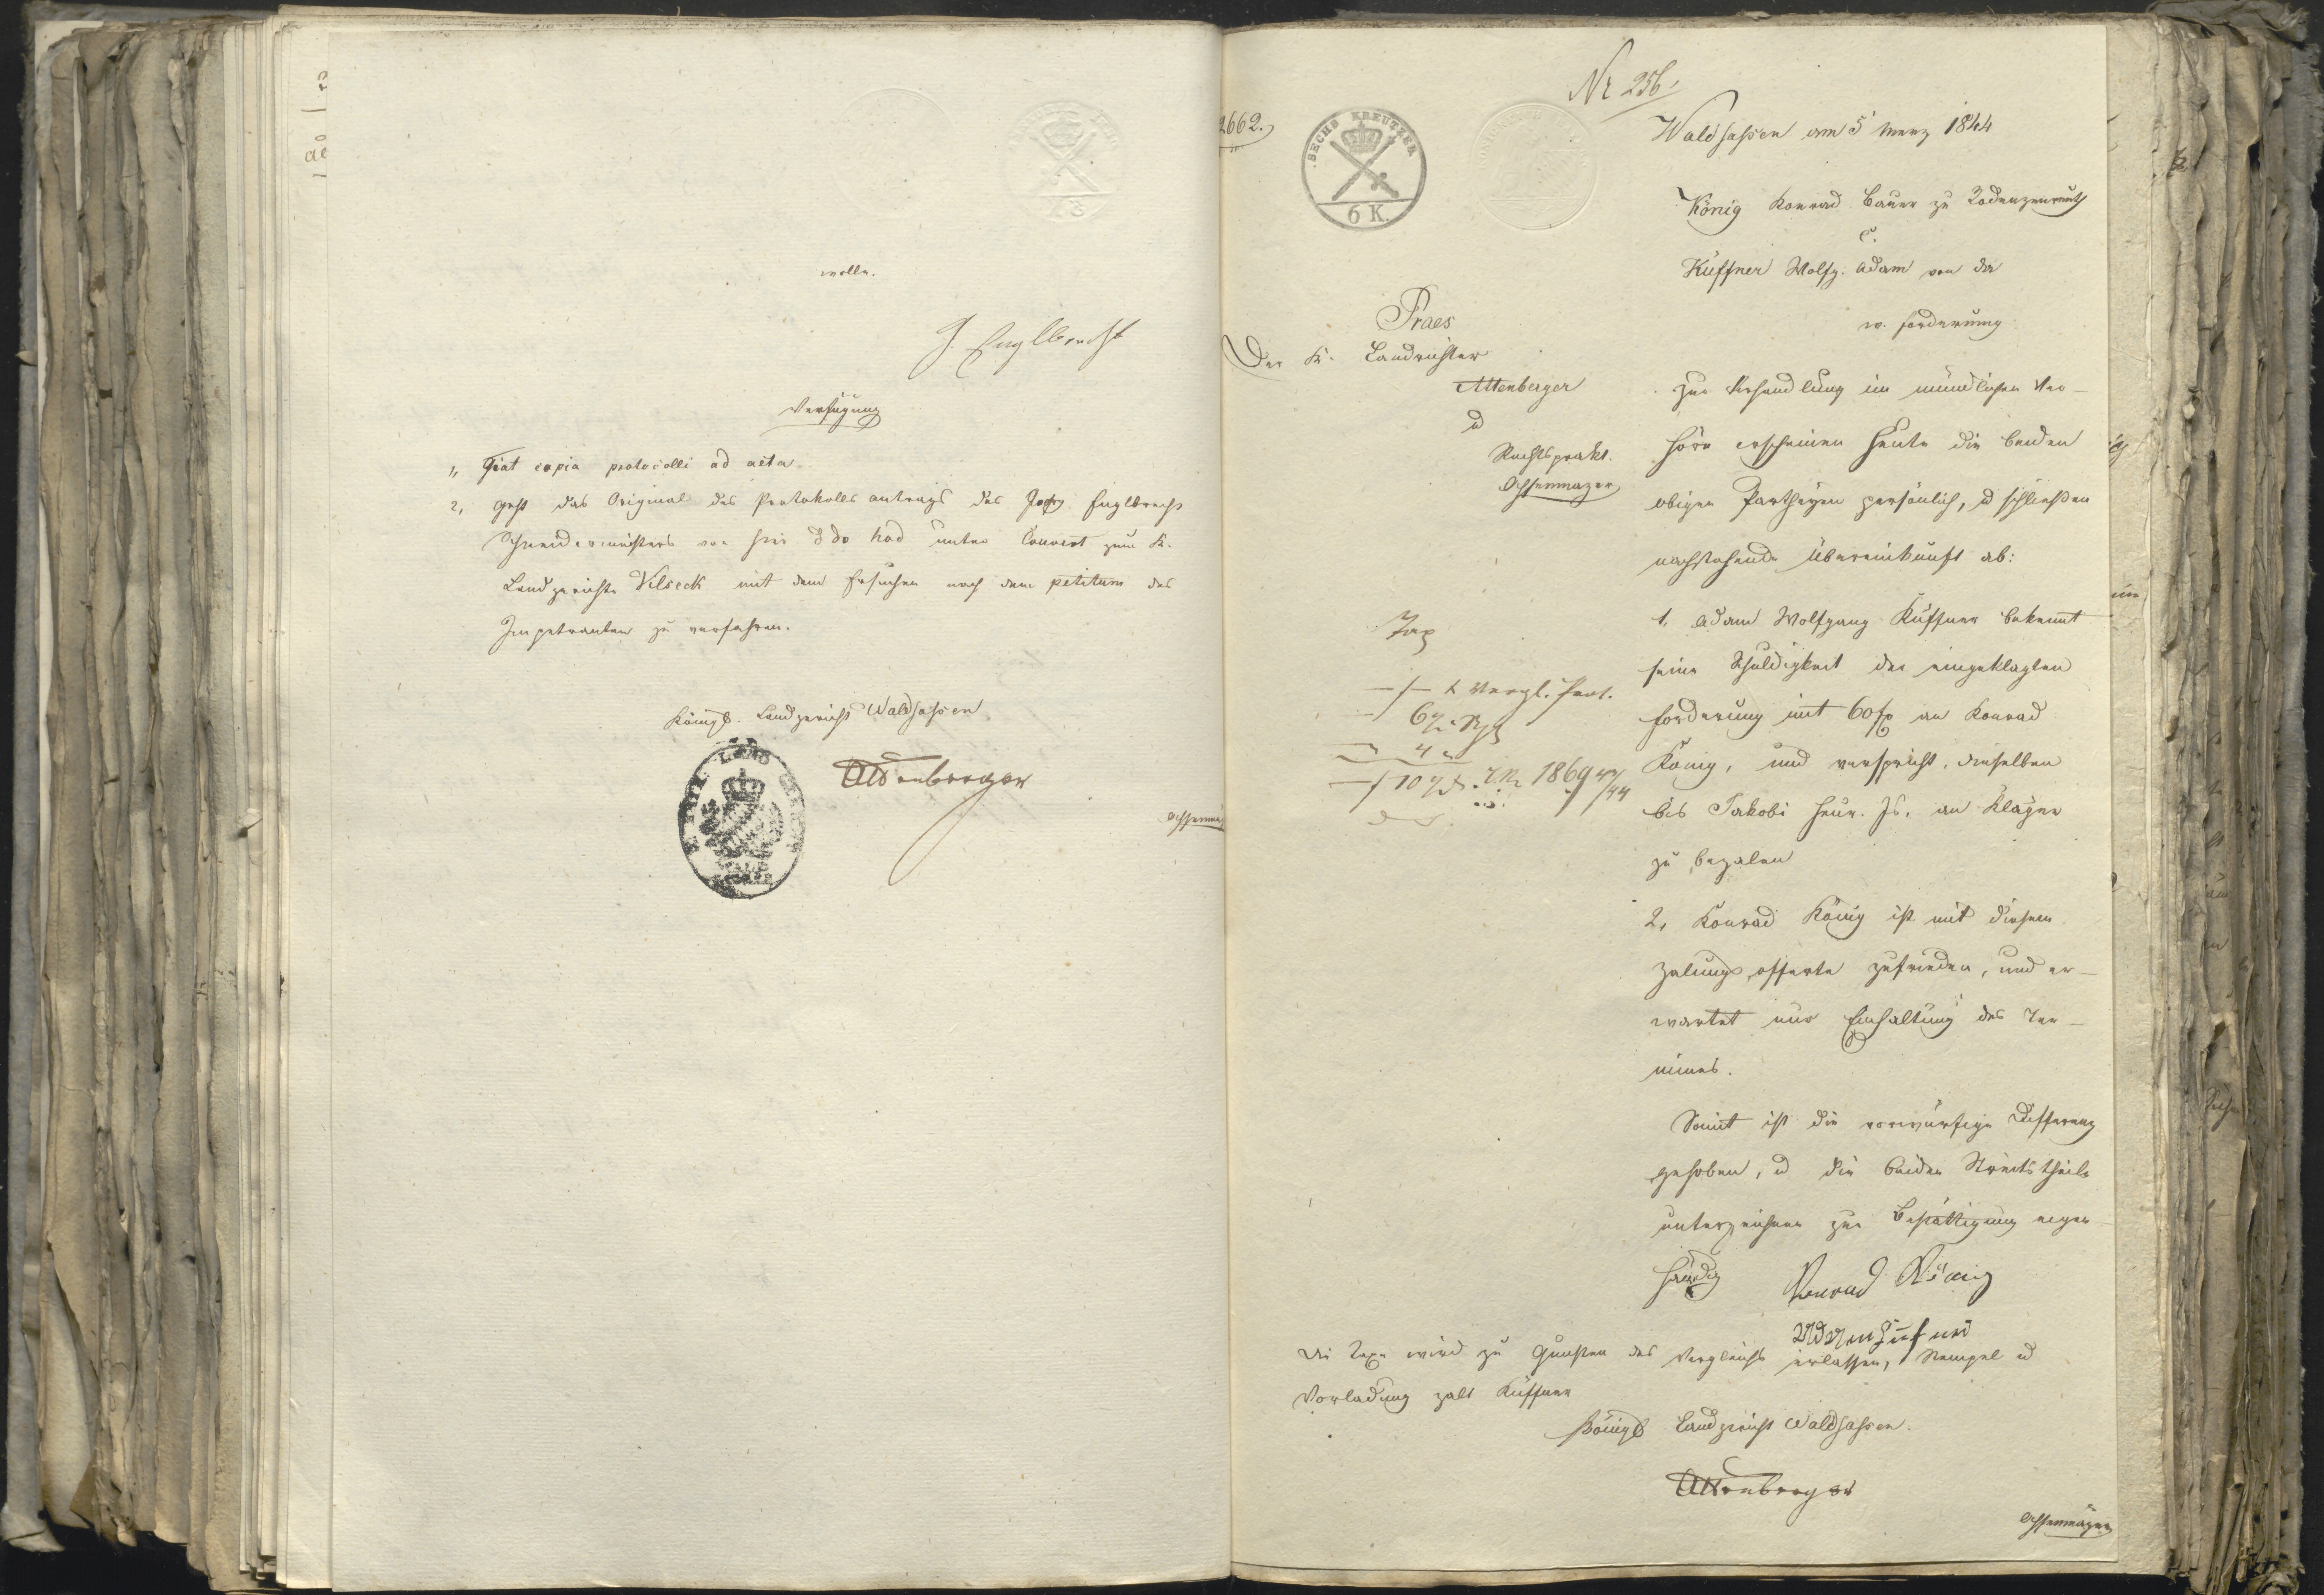 wolle.
J. Englbrecht
Verfügung
1, Fiat copia protocolli ad acta.
2, geht das Original des Protokolls antrags des Englbrecht
Schneidermeisters von hier unter Couvert zum K.
Landgerichte Vilseck mit dem Ersuchen nach dem petitum des
Impetranten zu verfahren.
Königl. Landgericht Waldsassen
Attenberger
Ochsenmayer
Nr 256.
2662.
SECHS KREUTZER
6 K.
Waldsassen am 5 Merz 1844
König Konrad Bauer zu
c.
Küffner Wolfg. Adam von da
w. Forderung
Praes
Der K. Landrichter
Attenberger
u
Rechtsprakt.
Ochsenmayer
Zur Verhandlung im mündlichen Ver-
höre erscheinen heute die beiden
obigen Partheyen persönlich, u schließen
nachstehende Übereinkunft ab:
1, Adam Wolfgang Küffner bekennt
seine Schuldigkeit der eingeklagten
Forderung mit 60 f an Konrad
König, und verspricht, dieselben
bis Jakobi heur. Js. an Kläger
zu bezalen
Tax
Vergl. Prot.
6
4
10 1869 43/44
2, Konrad König ist mit diesem
Zalungsofferte zufrieden, und er-
wartet nur Einhaltung des Ter-
mines.
Somit ist die vorwürfige Differenz
gehoben, u die beiden Streitstheile
unterzeichnen zur Bestättigung eigen
händig
Konrad König
Adam Küfner
Die Taxe wird zu Gunsten des Vergleichs erlassen, Stempel u
Vorladung zalt Küffner
Königl Landgericht Waldsassen.
Attenberger
Ochsenmayer